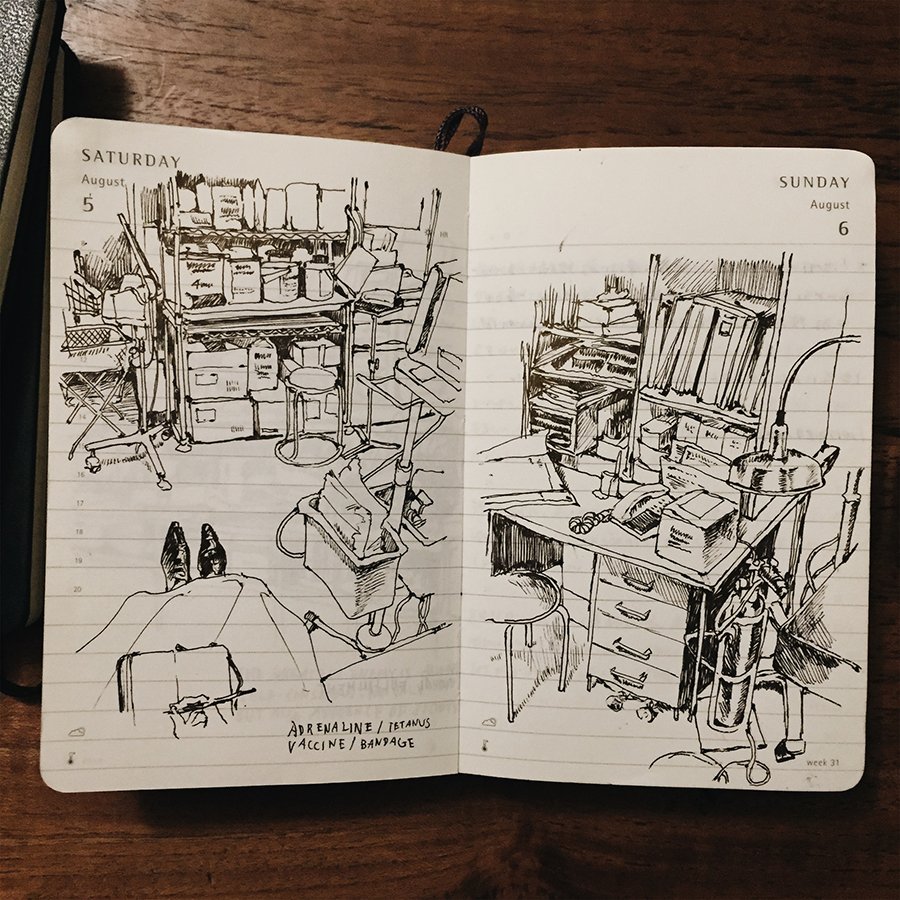 SATURDAY
August
5
8
12
16
17
18
19
20
ADRENALINE / TETANUS
VACCINE / BANDAGE
SUNDAY
August
6
week 31